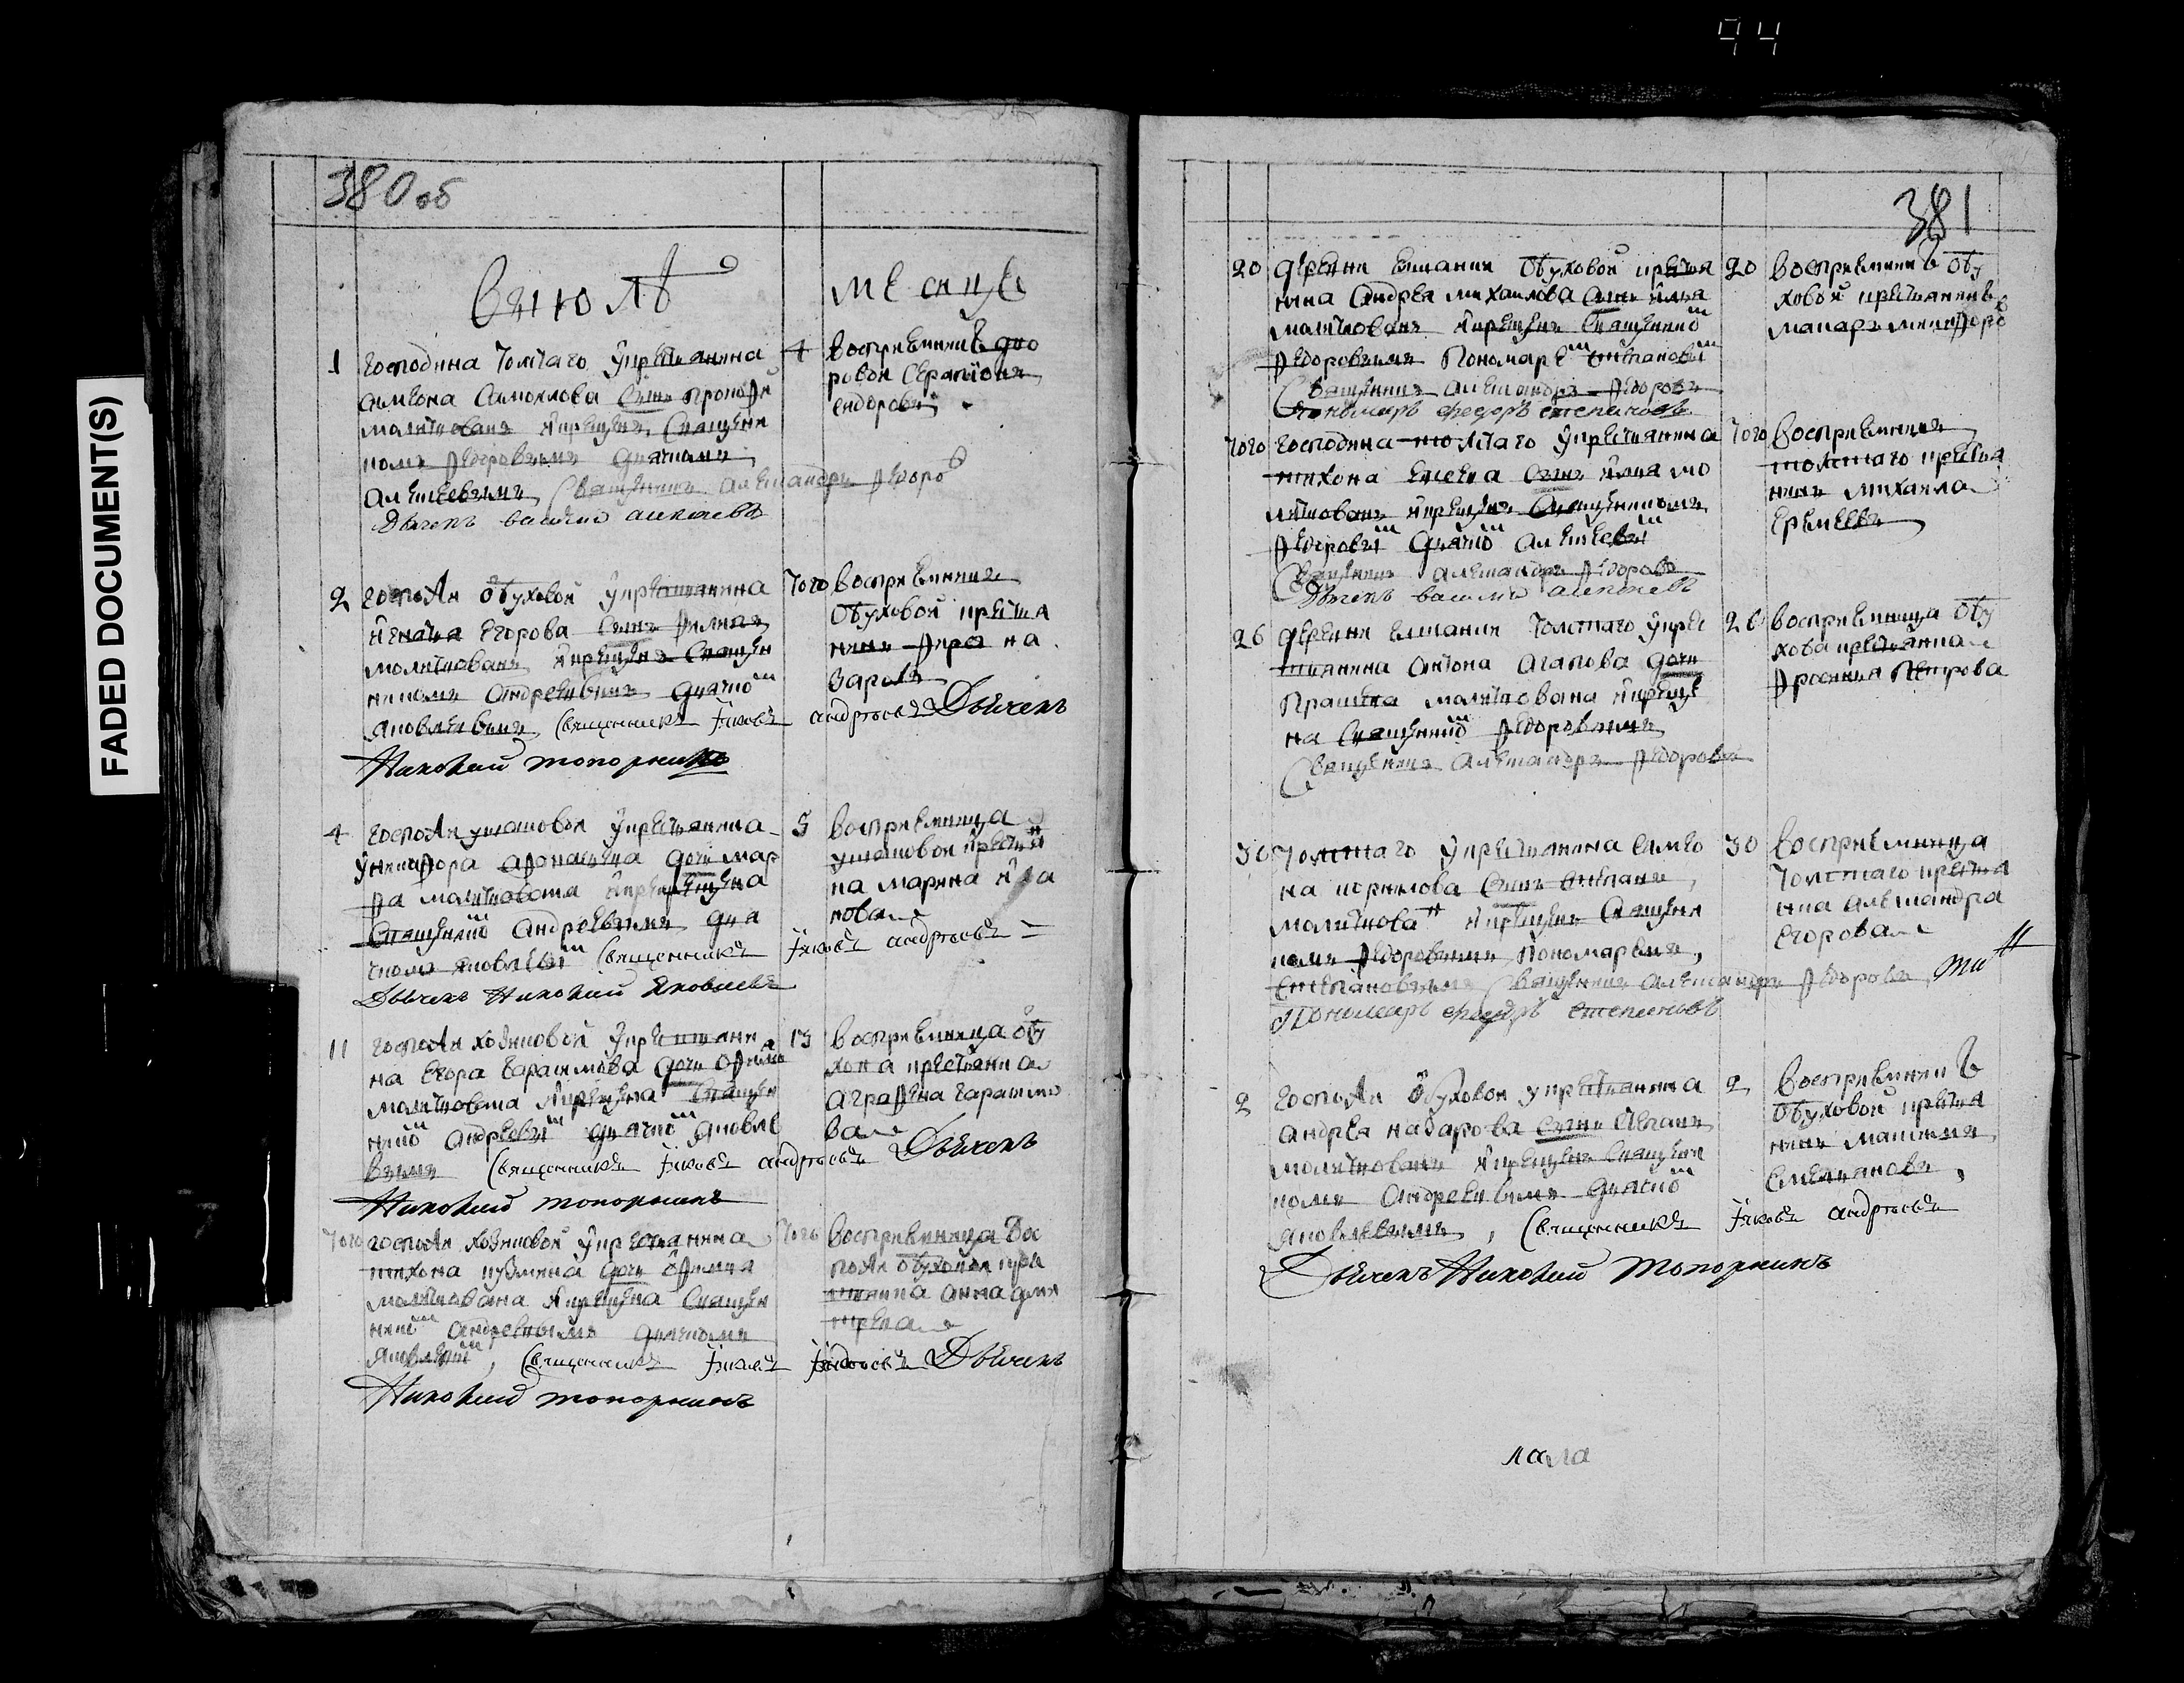 94
FADED DOCUMENT(S)
380 об
В июлѣ
месицѣ
1 господина толстаго у крестьянина
симеона самоилова сынъ прокофи
молитвованъ и крещенъ священи
комъ федоровымъ дьячкомъ
алексеевымъ священикъ александръ федоро
Дьячекъ василий алексеевъ
4 восприемникъ дво
ровой серапионъ
сидоровъ
2 госпожи обуховой у крестьянина
игнатья егорова сынъ
молитвованъ и крещенъ священ
никомъ андреевымъ дьячко
яковлевымъ священникъ Іяковъ андреевъ Дьячекъ
Николай топорнинъ
того восприемникъ
обуховой крестья
нинъ фрол на
заровъ
4 госпожи ушаковой у крестьянина
у никифора афонасьева дочь мар
фа молитвована и крещена
священико андреевымъ дья
чкомъ яковлевы священникъ Іяковъ андреевъ
Дьячекъ Николай Яковлевъ
5 восприемница
ушаковой крестья
нка марина ива
нова
11 госпожи у крестьяни
на егора гарасимова дочь
молитвована и крещена священ
нико андреевы дьячко яковле
вымъ священникъ Іяковъ андреевъ Дьячекъ
Николай топорнинъ
13 восприемница обу
хова крестьянка
аграфена гарасимо
ва
того госпожи у крестьянина
тихона кузмина дочь
молитвована и крещена священ
нико андреевымъ дьячкомъ
яковлевы священникъ Іяковъ андреевъ Дьячекъ
Николай топорнинъ
того восприемница гос
пожи обуховой кре
стьянка анна дми
треева
381
20 деревни обуховой крестья
нина андрея михаилова сынъ илья
молитвованъ и крещенъ священико
федоровымъ пономаре степановы
Священикъ александръ федоровъ
Пономарь федоръ степановъ
20 восприемникъ обу
ховой крестьянинъ
макаръ никифоро
того господина толстаго у крестьянина
тихона елсева сынъ илья мо
литвованъ и крещенъ священикомъ
федоровы дьячко алексеевы
Священикъ александръ федоровъ
Дьячекъ василий алексеевъ
того восприемникъ
толстаго крестья
нинъ михаила
еремеевъ
26 деревни толстаго у крес
тьянина антона агапова дочь
прасковя молитвована и креще
на священико федоровымъ
Священикъ александръ федоровъ
26 восприемница обу
хова крестьянка
фросинья петрова
30 толстаго у крестьянина симео
на кирилова сынъ степанъ
молитвова и крещенъ священи
комъ федоровымъ пономаремъ
степановымъ Священикъ александръ федоровъ
Пономарь федоръ степановъ
30 восприемница
толстаго крестья
нка александра
егорова
2 госпожи обуховой у крестьянина
андрея назарова сынъ степанъ
молитвованъ и крещенъ священи
комъ андреевымъ дьячко
яковлевымъ, священникъ Іяковъ андреевъ
Дьячекъ Николай топорнинъ
2 восприемникъ
обуховой крестья
нинъ максимъ
емельяновъ